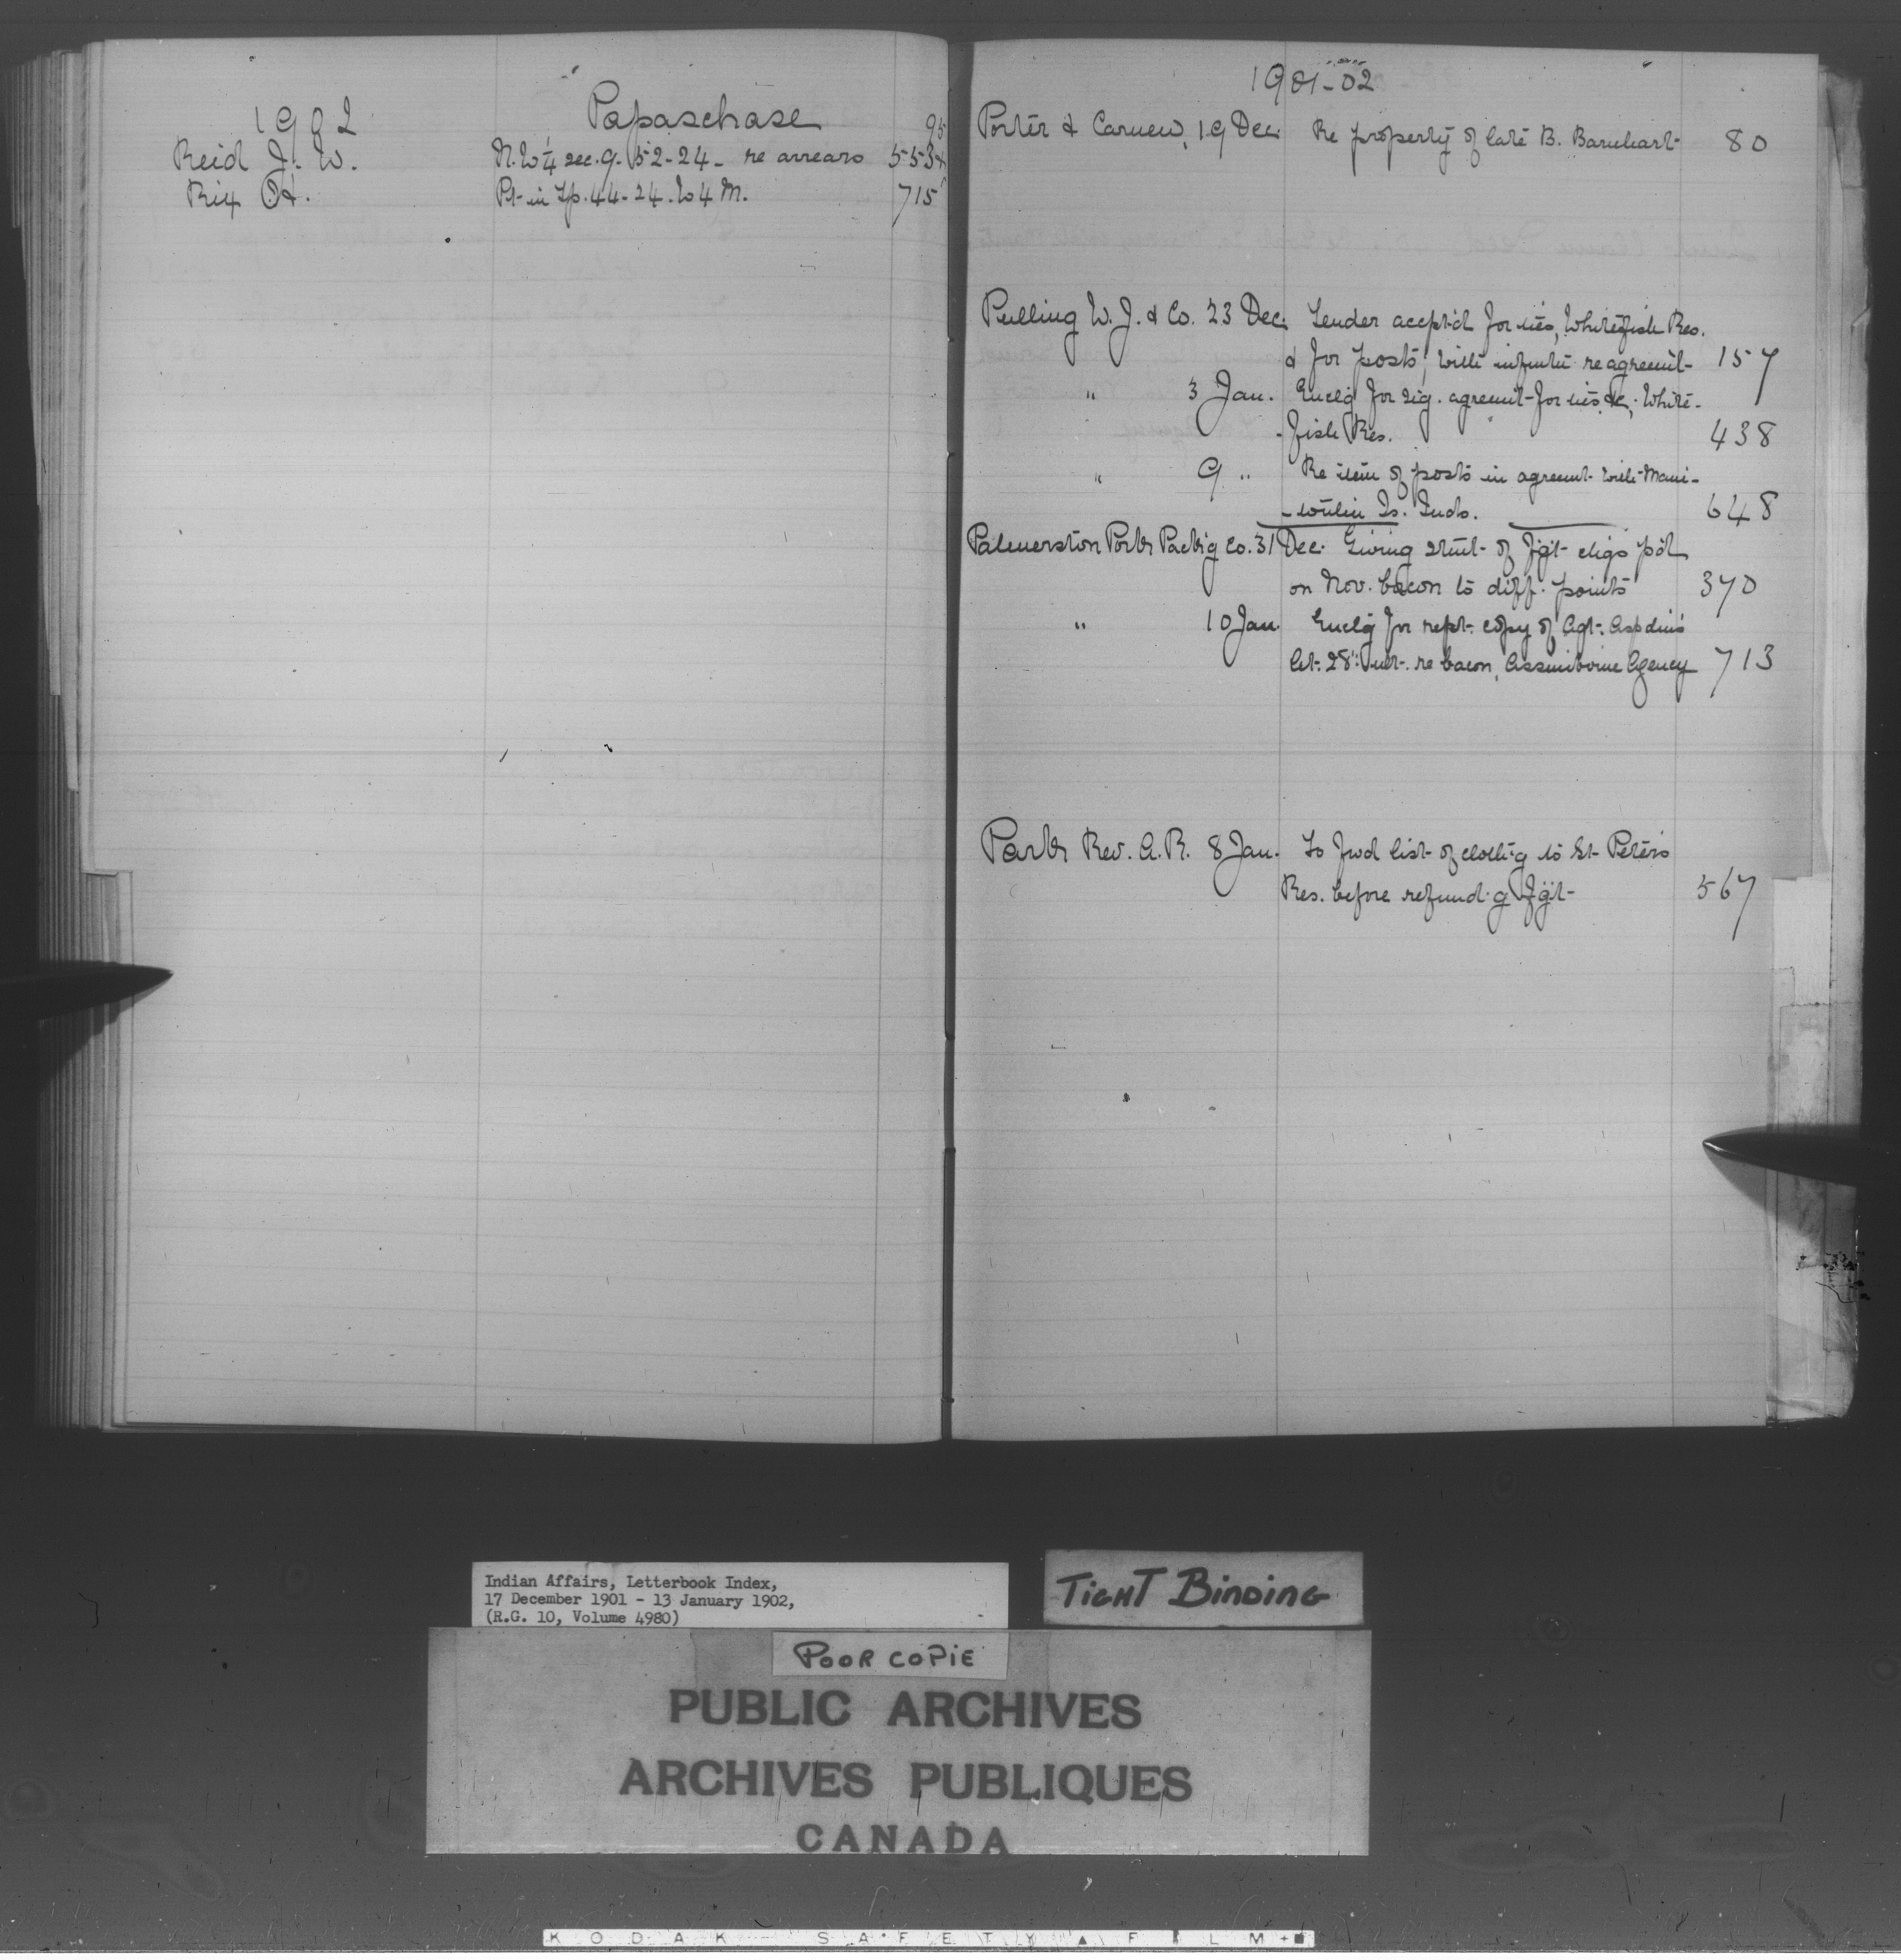 1902 Papaschase 95
Reid J. W. N.W¼ sec. 9. 52-24- re arrears 553
Rix H. Pt- in Tp. 44-24. W4M. 715
1901-02
Porter & Carnew, 19 Dec. Re property of late B. Barnhart- 80
Pulling W. J. & Co. 23 Dec. Tender accept'd for ties, Whitefish Res.
& for posts, Will- re agreemt- 157
" 3 Jan. Enclg for sig. agreemt- for ties &c, White-
-fish Res. 438
" 9 " Re item of posts in agreemt- with Mani-
-toulin Is. Inds. 648
Palmerston Pork Pack'g Co. 31 Dec. Giving stmt- of fg't- chgs p'd
on Nov. bacon to diff. points 370
" 10 Jan. Enclg for rept- copy of Agt. Aspdin's
let. 28th ult. re bacon, Assiniboine Agency 713
Park Rev. A. R. 8 Jan. To fwd list- of cloth'g to St- Peter's
Res. before refund'g fg't- 567
Indian Affairs, Letterbook Index,
17 December 1901 - 13 January 1902,
(R.G. 10, Volume 4980)
TIGHT BINDING
POOR COPIE
PUBLIC ARCHIVES
ARCHIVES PUBLIQUES
CANADA
KODAK SAFETY ▲ FILM